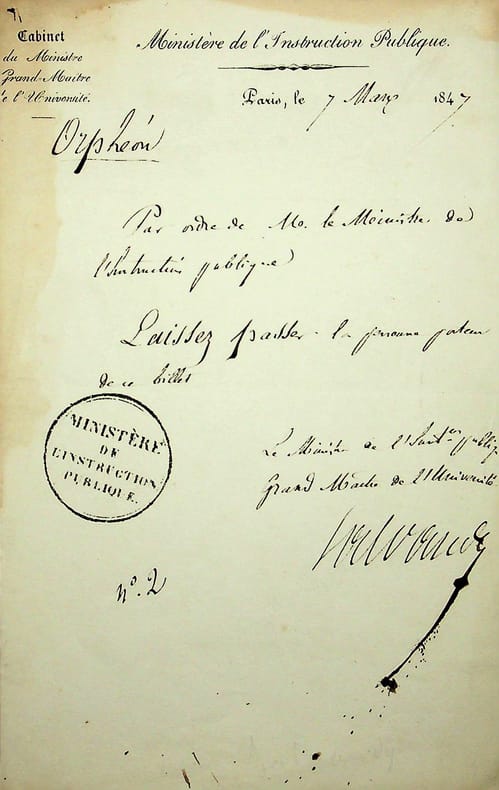 Cabinet
du Ministre
Grand-Maitre
de l'Université.
Ministère de l'Instruction Publique.
Paris, le 7 Mars 1847
Orphéon
Par ordre de M. le Ministre de
l'Instruction publique
Laissez passer la personne porteur
de ce billet
MINISTÈRE
DE
L'INSTRUCTION
PUBLIQUE.
Le Ministre de l'Inst.on publiq
Grand Maitre de l'Université
Salvandy
n.° 2